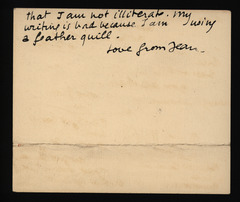 that I am not illiterate. My
writing is bad because I am using
a feather quill.
Love from Jean.